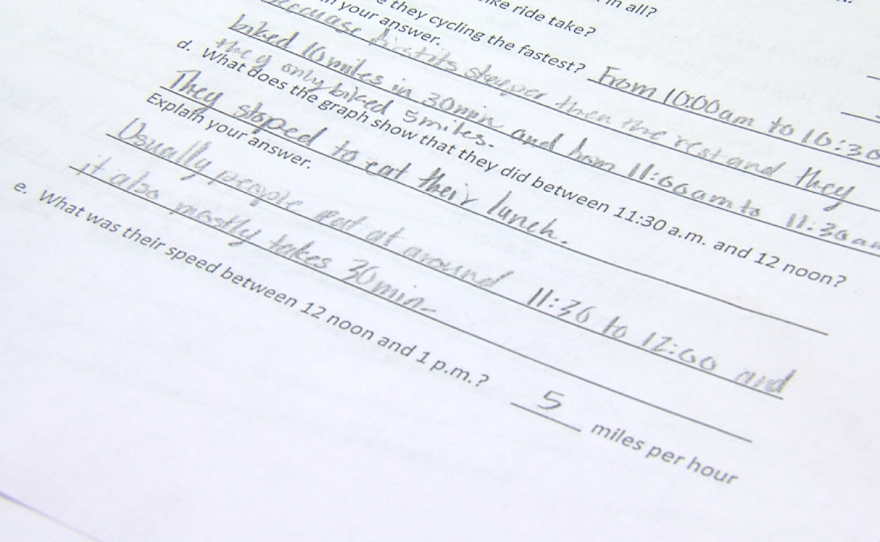 in all?
ike ride take?
e they cycling the fastest? From 10:00am to 10:30
n your answer.
because it steeper then the rest and they
biked 10 miles in 30min and from 11:00am to 11:30am
they only biked 5 miles.
d. What does the graph show that they did between 11:30 a.m. and 12 noon?
They stoped to eat their lunch.
Explain your answer.
Usually people eat at around 11:30 to 12:00 and
it also mostly takes 30min.
e. What was their speed between 12 noon and 1 p.m.?
5 miles per hour